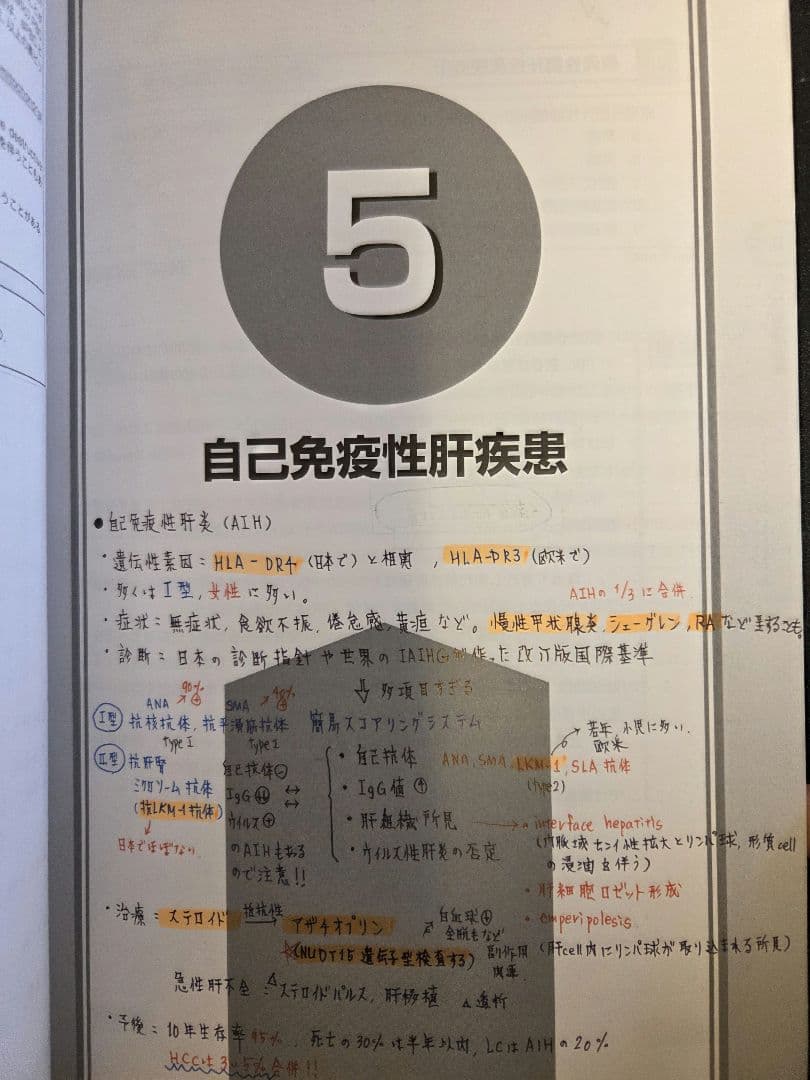 5
自己免疫性肝疾患
● 自己免疫性肝炎 (AIH)
・遺伝性素因：HLA-DR4 (日本で) と相関 , HLA-DR3 (欧米で)
・多くはI型, 女性に多い。
AIHの1/3に合併
・症状：無症状, 食欲不振, 倦怠感, 黄疸など。慢性甲状腺炎, シェーグレン, RAなど呈することも。
・診断：日本の診断指針や世界のIAIHG製作した改訂版国際基準
⇓ 多項目すぎる
簡易スコアリングシステム
ANA 90%⊕ SMA ⊕
I型 抗核抗体, 抗平滑筋抗体
type1 type1
II型 抗肝腎
ミクロソーム抗体
(抗LKM-1抗体)
日本でほぼない
自己抗体⊖
IgG ↔
ウイルス⊕ ↔
のAIHもある
ので注意!!
・自己抗体 ANA, SMA, LKM-1, SLA抗体
(type2)
若年, 小児に多い.
欧米
・IgG値 ↑
・肝組織所見 → ・interface hepatitis
(門脈域センイ性拡大とリンパ球, 形質cell
の浸潤を伴う)
・ウイルス性肝炎の否定
・肝細胞ロゼット形成
・emperipolesis
(肝cell内にリンパ球が取り込まれる所見)
・治療：ステロイド 抵抗性→ アザチオプリン
(NUDT15遺伝子型検査する)
白血球↓
全脱毛など
副作用
関連
急性肝不全：ステロイドパルス, 肝移植 △透析
・予後：10年生存率95%. 死亡の30%は半年以内, LCはAIHの20%
HCCは3~5%合併!!